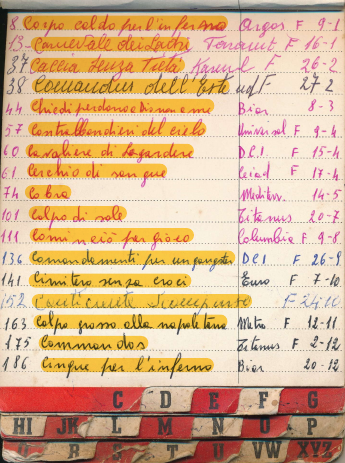 8 Corpo caldo per l'inferno Argos F 9-1
13 Carnevale dei Ladri Paramut F 16-1
37 Caccia Senza Pietà F 26-2
38 Comandos dell'Est F 27 2
44 Chiedi perdono a Dio non a me Bior 8-3
57 Contrabbandieri del cielo Universal F 9-4
60 Cavaliere di Lagardere D.C.I F 15-4
61 Cerchio di sangue Ceiad F 17-4
74 Cobra Mediterr. 14-5
101 Colpo di sole Titanus 20-7
111 Cominciò per gioco Columbia F 9-8
136 Comandamenti per un gangster D.C.I F 26-9
141 Cimitero senza croci Euro F 7-10
152 F 24 10
163 Colpo grosso alla napoletana Metro F 12-11
175 Commandos Titanus F 2-12
186 Cinque per l'inferno Bior 20-12
C D E F G
HI JK L M N O P
R S T U VW XYZ